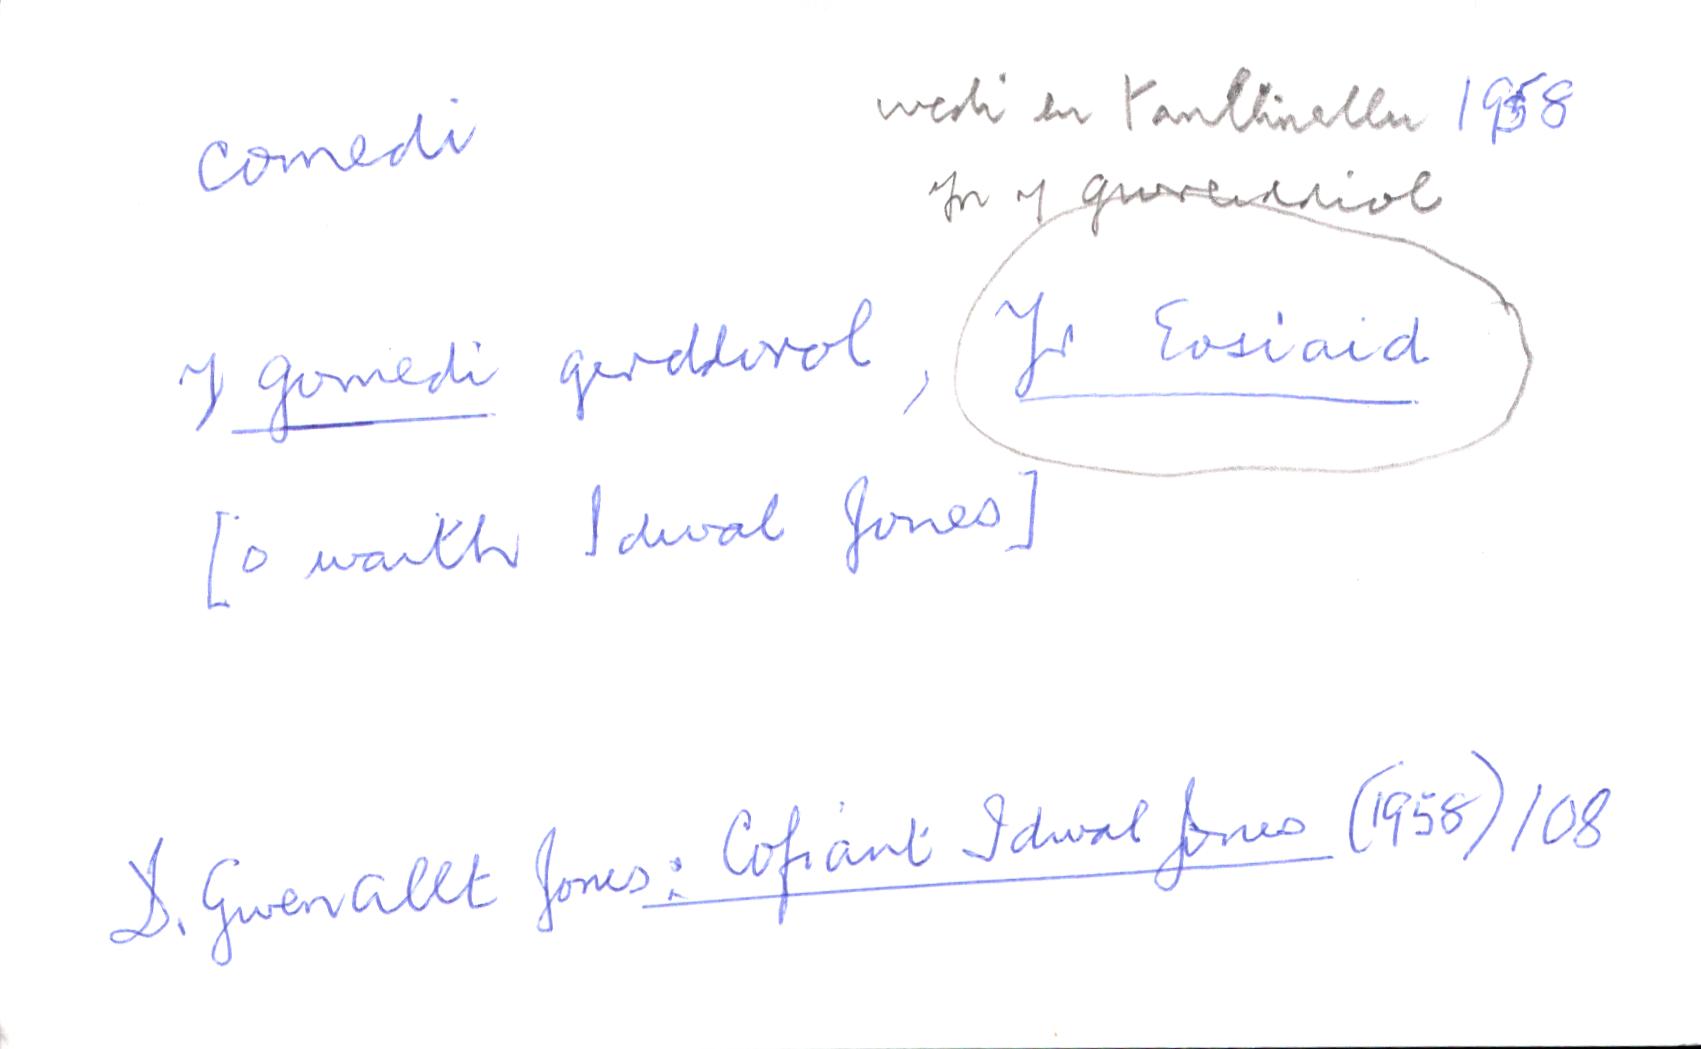 comedi
wedi ei tanllinellu 1958
yn y gwreiddiol
y gomedi gerddorol, Yr Eosiaid
[o waith Idwal Jones]
D. Gwenallt Jones: Cofiant Idwal Jones (1958) 108